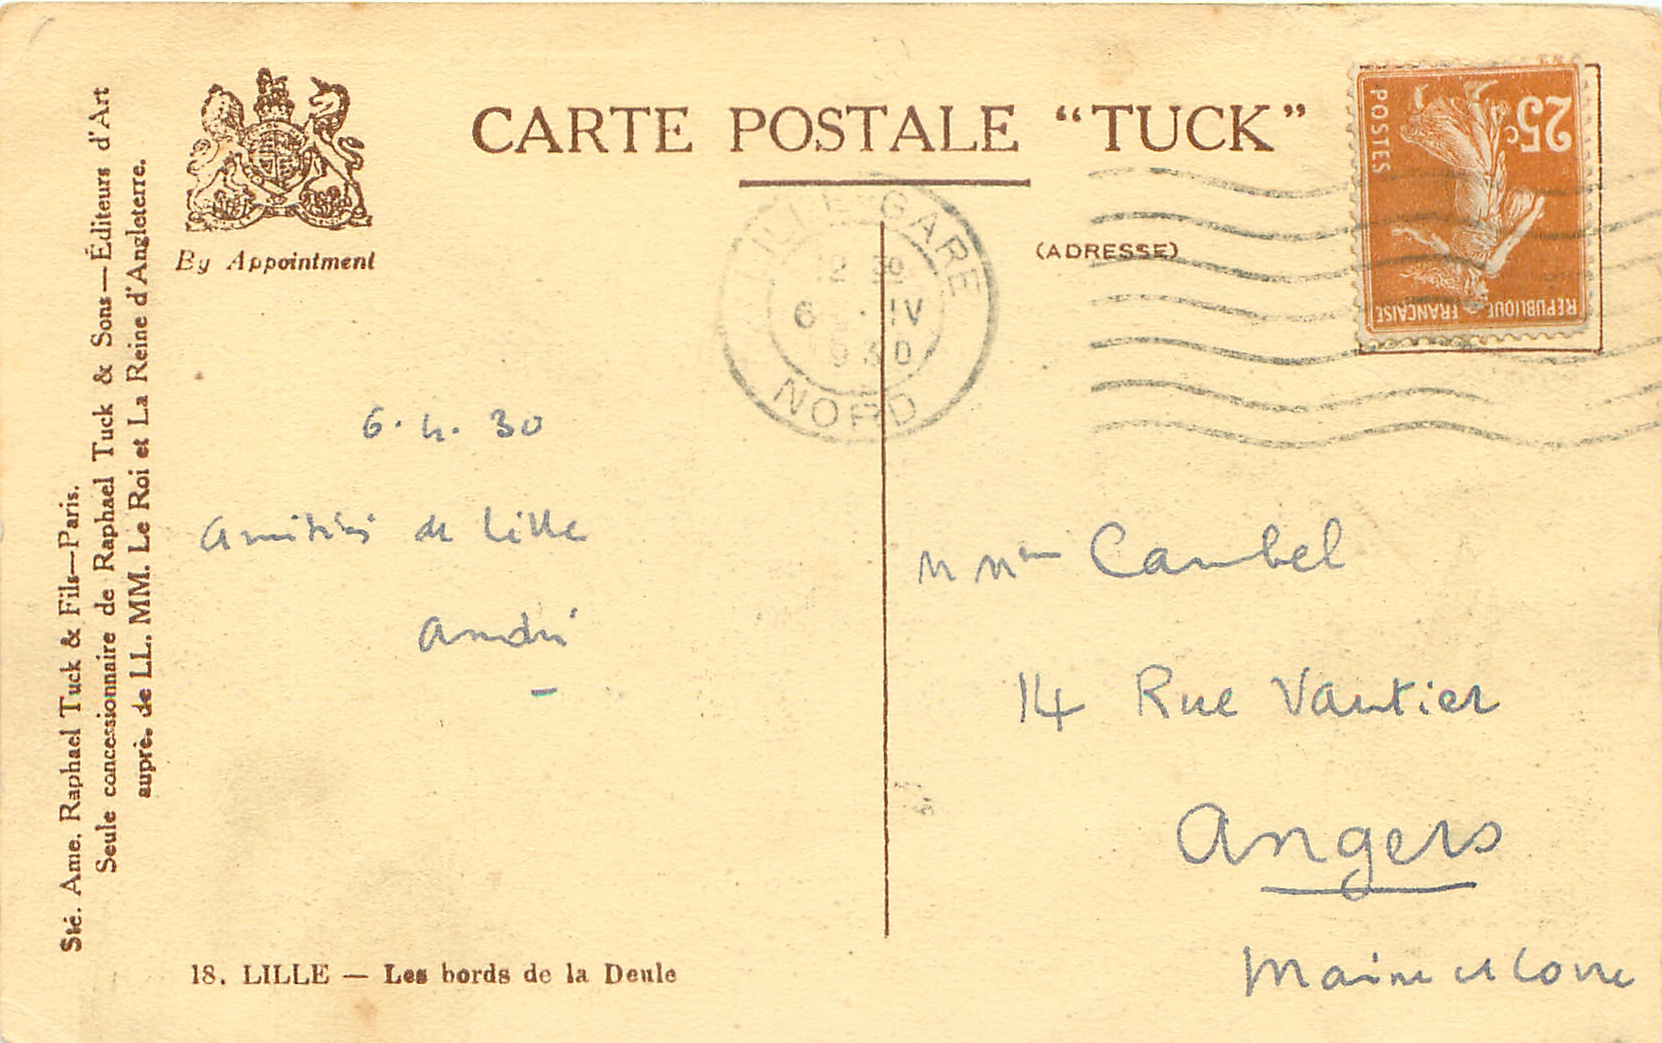 CARTE POSTALE “TUCK”
By Appointment
Sté. Ame. Raphael Tuck & Fils—Paris.
Seule concessionnaire de Raphael Tuck & Sons—Éditeurs d'Art
auprès de LL. MM. Le Roi et La Reine d'Angleterre.
(ADRESSE)
POSTES
25c
REPUBLIQUE FRANÇAISE
LILLE-GARE
12 30
6 · IV
1930
NORD
6. 4. 30
Amitiés de Lille
André
M Mme Cambel
14 Rue Vautier
Angers
Maine et Loire
18. LILLE — Les bords de la Deule